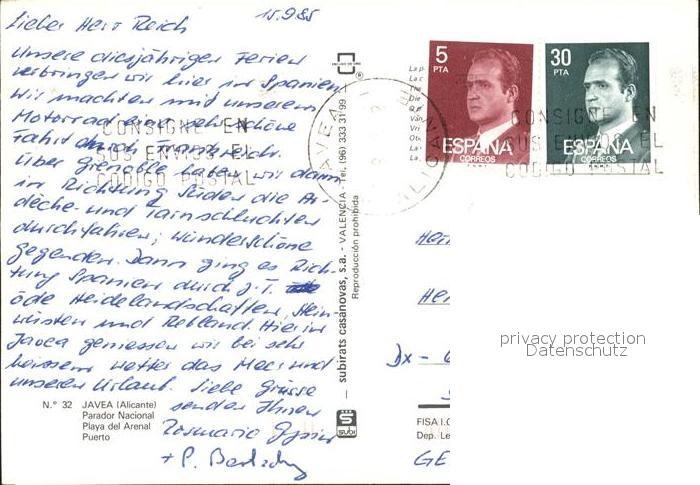 15.9.85
Lieber Herr Reich
Unsere diesjährigen Ferien
verbringen wir hier in Spanien
Wir machten mit unserem
Motorrad eine sehr schöne
Fahrt durch Frankreich.
Über Grenoble haben wir dann
in Richtung Süden die Ar-
dèche- und Tarnschluchten
durchfahren; wunderschöne
Gegenden. Dann ging es Rich-
tung Spanien durch z.T.
öde Heidelandschaften, Stein-
wüsten und Rebland. Hier in
Javea geniessen wir bei sehr
heissem Wetter das Meer und
unseren Urlaub. Liebe Grüsse
senden Ihnen
Rosmarie
+ P.
N.° 32 JAVEA (Alicante)
Parador Nacional
Playa del Arenal
Puerto
subirats casanovas, s.a. - VALENCIA - Tel. (96) 333 31 99
Reproducción prohibida
subi
5
PTA
ESPAÑA
CORREOS
30
PTA
ESPAÑA
CORREOS
JAVEA
CONSIGNE EN
SUS ENVIOS EL
CODIGO POSTAL
CONSIGNE EN
SUS ENVIOS EL
CODIGO POSTAL
privacy protection
Datenschutz
Dx -
FISA I.G
Dep. Le
GE